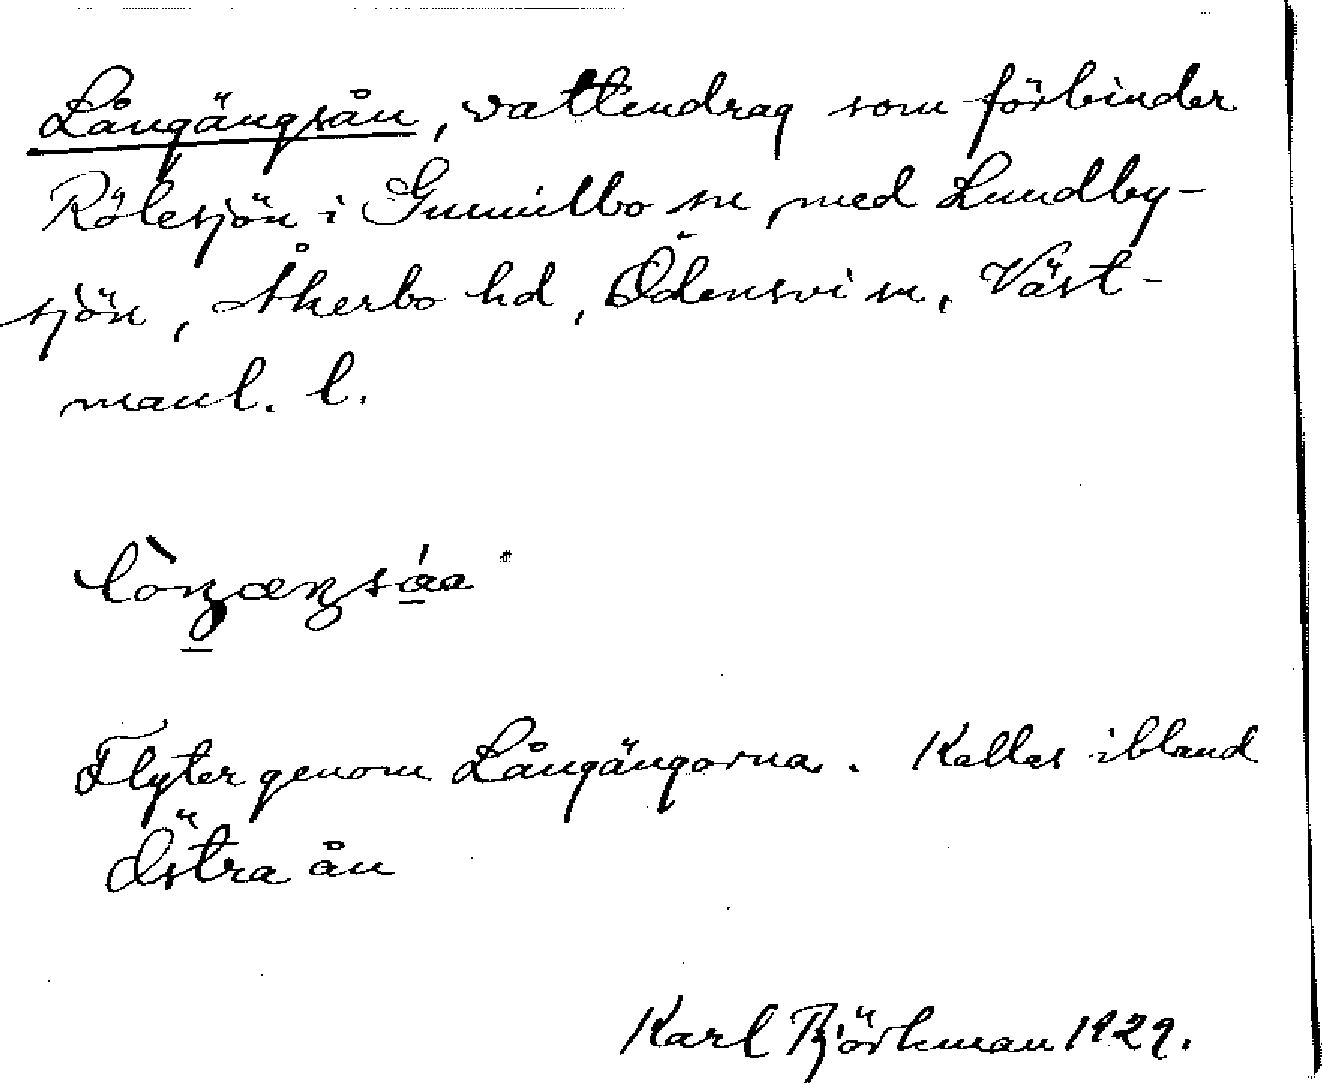 Långängsån, vattendrag som förbinder
Rölesjön i Gunnilbo sn med Lundby-
sjön, Åkerbo hd, Ödensvi sn, Väst-
manl. l.
Flyter genom Långängarna. Kallas ibland
Östra ån
Karl Björkman 1929.